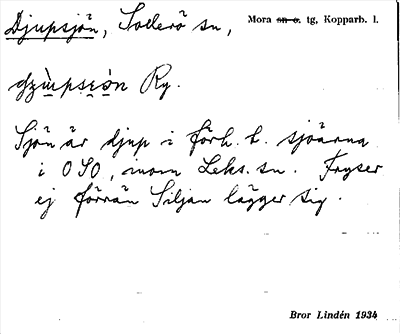 Djupsjön, Sollerö sn,
Mora s̶n̶ ̶o̶.̶ tg, Kopparb. l.
Ry.
Sjön är djup i förh. t. sjöarna
i OSO, inom Leks. sn. Fryser
ej förrän Siljan lägger sig.
Bror Lindén 1934